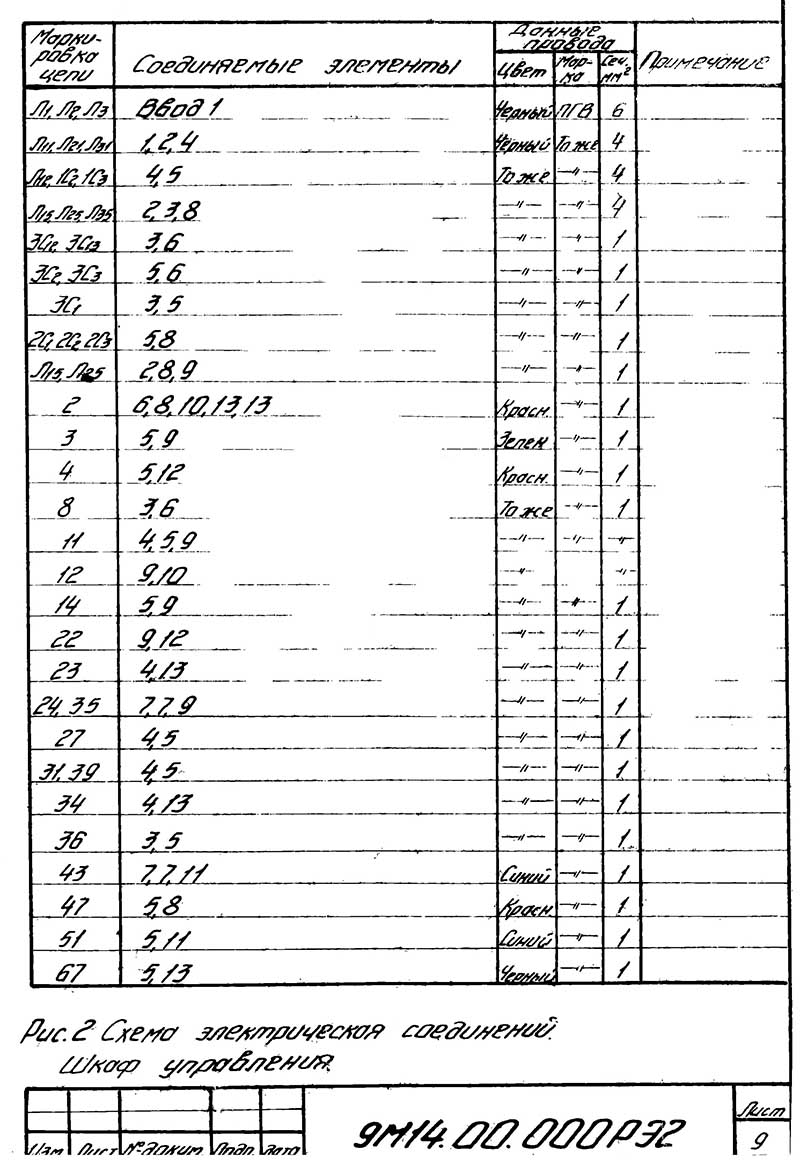 Марки-ровка цепи Соединяемые элементы Данные провода Примечание
Цвет Мар-ка Сеч. мм²
Л1, Л2, Л3 Ввод 1 Черный ПГВ 6
Л11, Л21, Л31 1, 2, 4 Черный То же 4
1С2, 1С3 4, 5 То же —〃— 4
Л15, Л25, Л35 2, 3, 8 —〃— —〃— 4
3С12, 3С13 3, 6 —〃— —〃— 1
3С2, 3С3 5, 6 —〃— —〃— 1
3С1 3, 5 —〃— —〃— 1
2С1, 2С2, 2С3 5, 8 —〃— —〃— 1
Л15, Л25 2, 8, 9 —〃— —〃— 1
2 6, 8, 10, 13, 13 Красн. —〃— 1
3 5, 9 Зелен —〃— 1
4 5, 12 Красн. —〃— 1
8 3, 6 То же —〃— 1
11 4, 5, 9 —〃— —〃— —〃—
12 9, 10 —〃— —〃—
14 5, 9 —〃— —〃— 1
22 9, 12 —〃— —〃— 1
23 4, 13 —〃— —〃— 1
24, 35 7, 7, 9 —〃— —〃— 1
27 4, 5 —〃— —〃— 1
31, 39 4, 5 —〃— —〃— 1
34 4, 13 —〃— —〃— 1
36 3, 5 —〃— —〃— 1
43 7, 7, 11 Синий —〃— 1
47 5, 8 Красн —〃— 1
51 5, 11 Синий —〃— 1
67 5, 13 Черный —〃— 1
Рис. 2 Схема электрическая соединений.
Шкаф управления.
Изм Лист № докум. Подп. Дата 9М14.00.000РЭ2 Лист
9